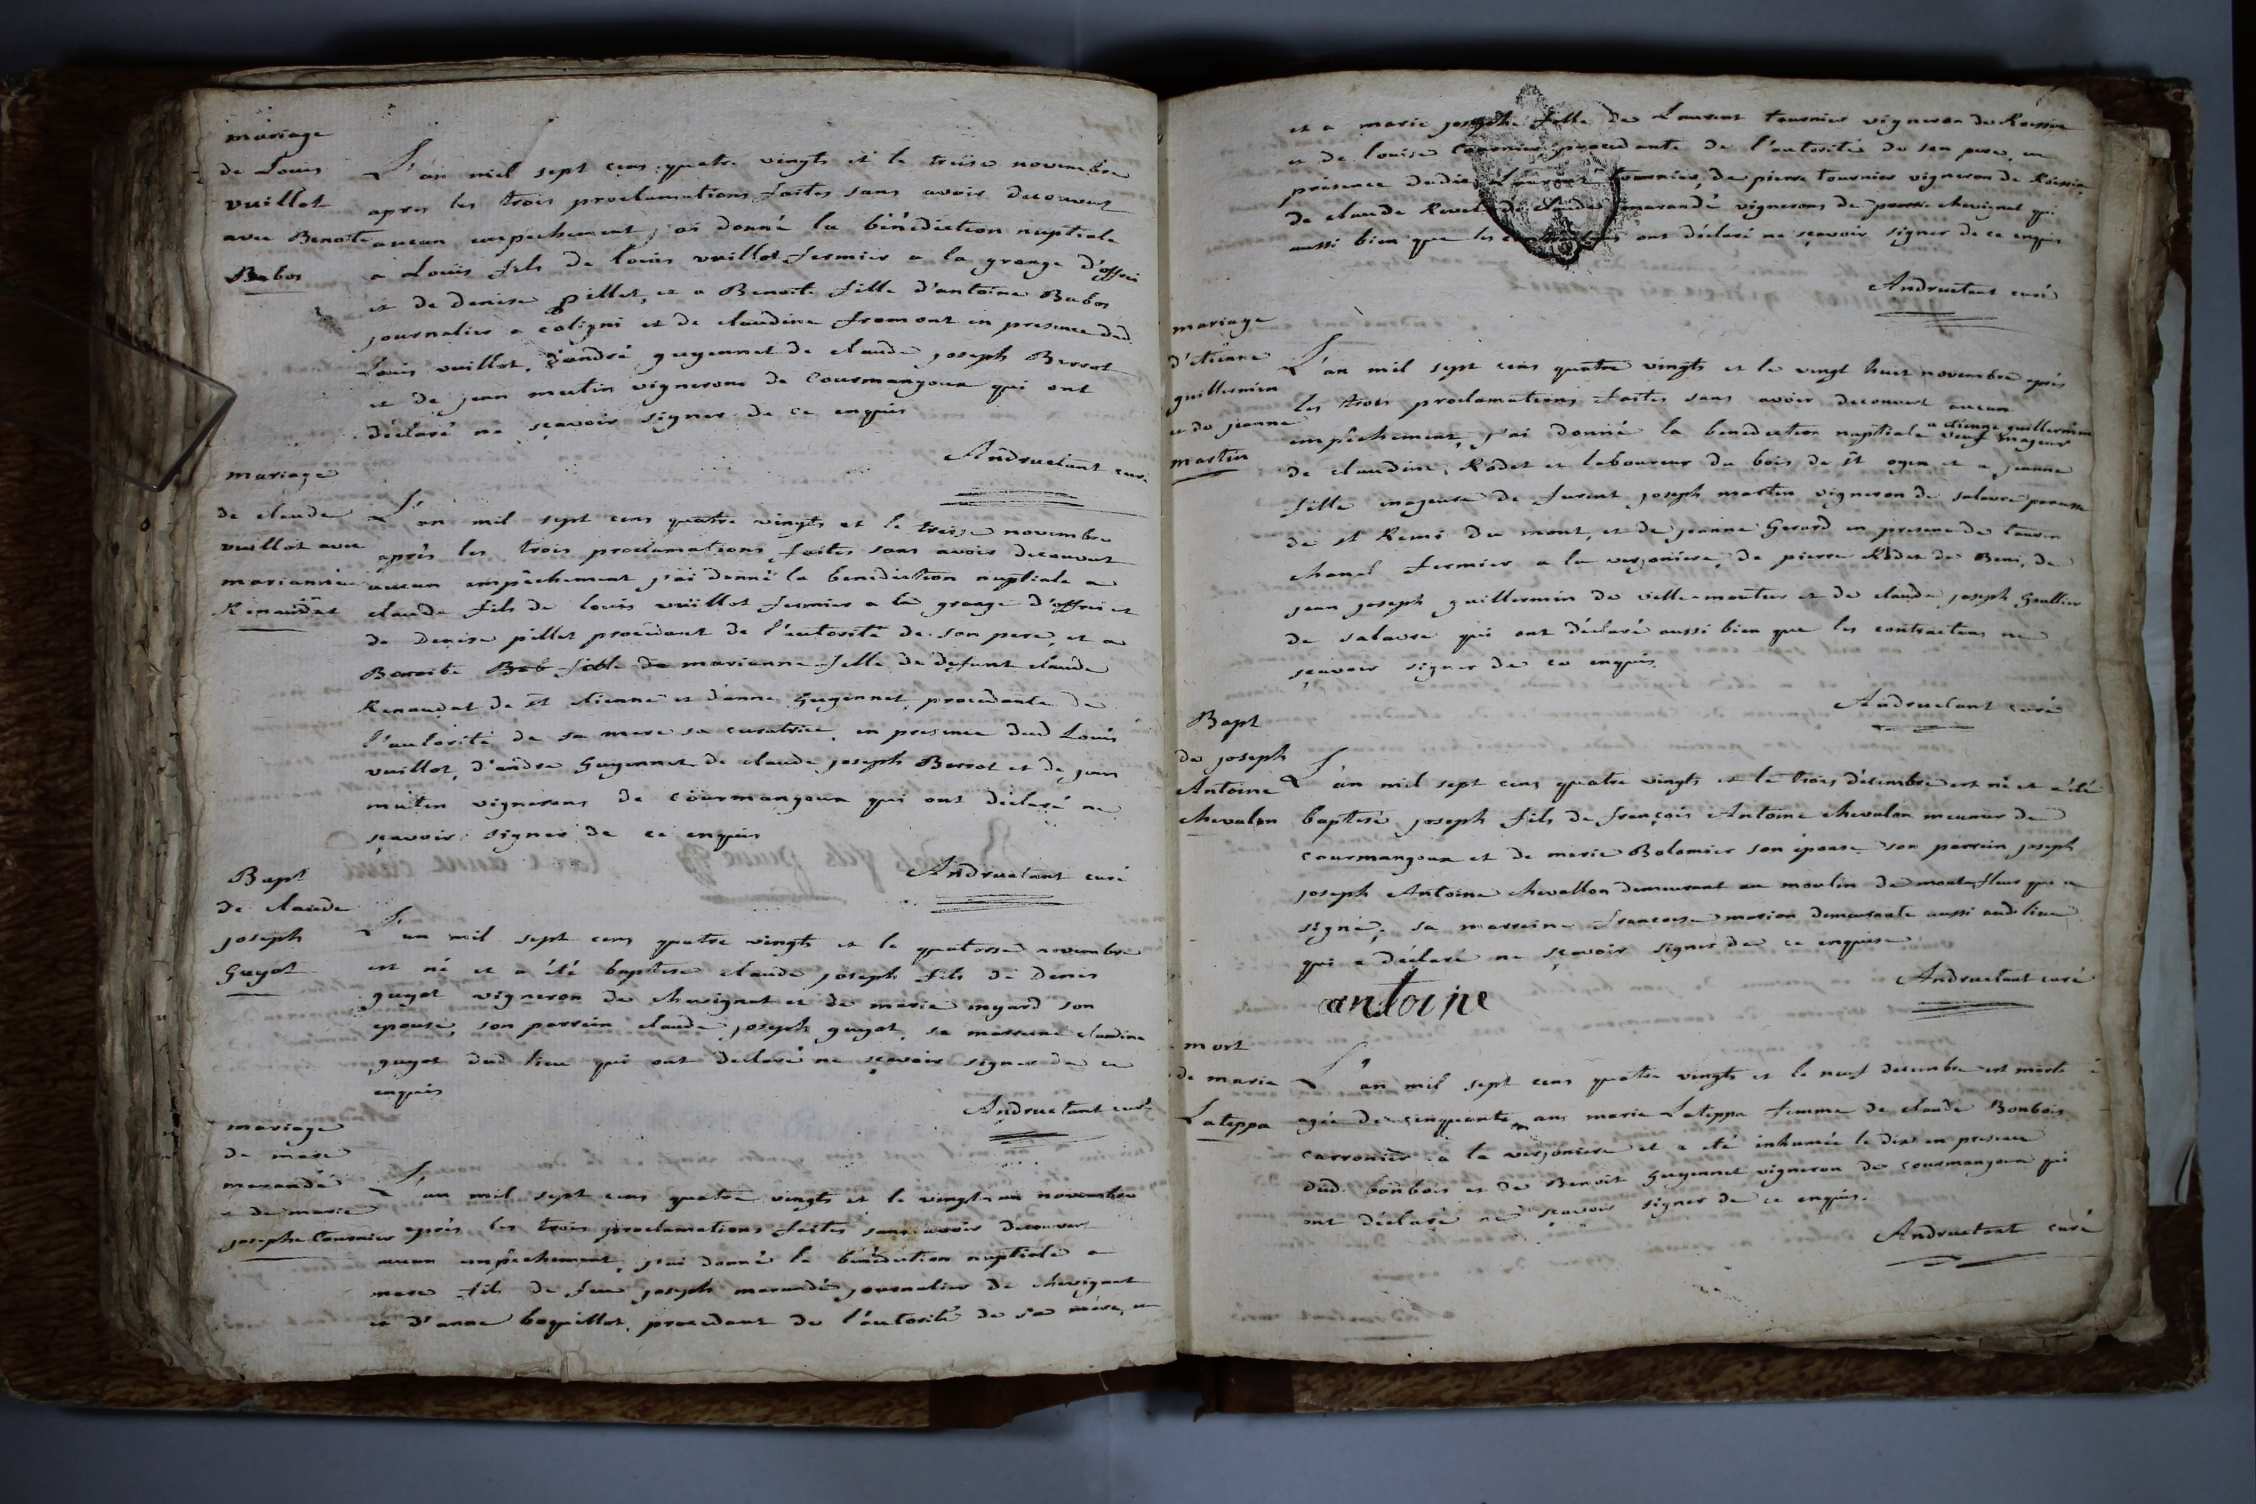 mariage
de Louis
vuillot
avec Benoite
Babos
L'an mil sept cens quatre vingts et le treise novembre
apres les trois proclamations faites sans avoir decouvert
aucun empêchement j'ai donné la bénédiction nuptiale
a Louis fils de louis vuillot fermier a la grange d'offroi
et de denise pillet, et a Benoite fille d'antoine Babos
journalier a coligni et de claudine fromont en presence dud
louis vuillot, d'andré guyennet de claude joseph Berrot
et de jean mutin vignerons de Courmangoux qui ont
déclaré ne sçavoir signer de ce enquis
Andruetant curé
mariage
de claude
vuillot avec
marianne
Renaudat
L'an mil sept cens quatre vingts et le treize novembre
après les trois proclamations faites sans avoir decouvert
aucun empêchement j'ai donné la benediction nuptiale a
claude fils de louis vuillot fermier a la grange d'offroi et
de denise pillet procédant de l'autorité de son pere, et a
Benoite Bab fille de marianne fille de defunt claude
Renaudat de st etienne et d'anne guyennet, procedante de
l'autorité de sa mere sa curatrice, en presence dud Louis
vuillot, d'andre guyennet de claude joseph Berrot et de jean
mutin vignerons de courmangoux qui ont déclaré ne
sçavoir signer de ce enquis
Andruetant curé
Bapt
de claude
joseph
guyot
L'an mil sept cens quatre vingts et le quatorse novembre
est né et a été baptise claude joseph fils de Denis
guyot vigneron de chevignat et de marie myard son
epouse, son parrein claude joseph guyot, sa marreine claudine
guyot dud lieu qui ont declaré ne sçavoir signer de ce
enquis
Andruetant curé
mariage
de marc
marandé
et de marie
josephe tournier
L'an mil sept cens quatre vingts et le vingt un novembre
après les trois proclamations faites sans avoir decouvert
aucun empêchement, j'ai donné la bénédiction nuptiale a
marc fils de feu joseph marandé journalier de chevignat
et d'anne boquillot, procedant de l'autorité de sa mère, et
et a marie josephe fille de Laurent tournier vigneron de Roissia
et de louise tournier procedante de l'autorité de son pere, en
présence dudit Laurent tournier, de pierre tournier vigneron de Roissia
de claude Revel de claude marandé vignerons de chevignat qui
aussi bien que les contractans ont déclaré ne sçavoir signer de ce enquis
Andruetant curé
mariage
d'etienne
guillermin
et de jeanne
martin
L'an mil sept cens quatre vingts et le vingt huit novembre après
les trois proclamations faites sans avoir decouvert aucun
empêchement, j'ai donné la benediction nuptiale a etienne guillermin veuf majeur
de claudine Rodet et laboureur du bois de st oyen et a jeanne
fille majeure de furent joseph martin vigneron de salavre paroisse
de st Remi du mont, et de jeanne Gerard en presence de laurent
chanel fermier a la verjoniere, de pierre Rodet de Beni, de
jean joseph guillermin de villemoutier et de claude joseph Grullier
de salavre qui ont déclaré aussi bien que les contractans ne
sçavoir signer de ce enquis
Andruetant curé
Bapt
de joseph
Antoine
chevalon
L'an mil sept cens quatre vingts et le trois décembre est né et a été
baptisé joseph fils de françois Antoine chevalon meunier de
courmangoux et de marie Bolomier son épouse son parrein joseph
joseph Antoine chevallon demeurant au moulin de montefleur qui a
signé, sa marreine francoise marion demeurante aussi audit lieu
qui a déclaré ne sçavoir signer de ce enquise
Andruetant curé
antoine
mort
de marie
Lateppa
L'an mil sept cens quatre vingts et le neuf decembre est morte
agée de cinquante ans marie Lateppa femme de claude Bonbois
carronier a la verjoniere et a été inhumée le dix en presence
dud. bonbois et de Benoit guyennet vigneron de courmangoux qui
ont déclaré ne sçavoir signer de ce enquis.
Andruetant curé